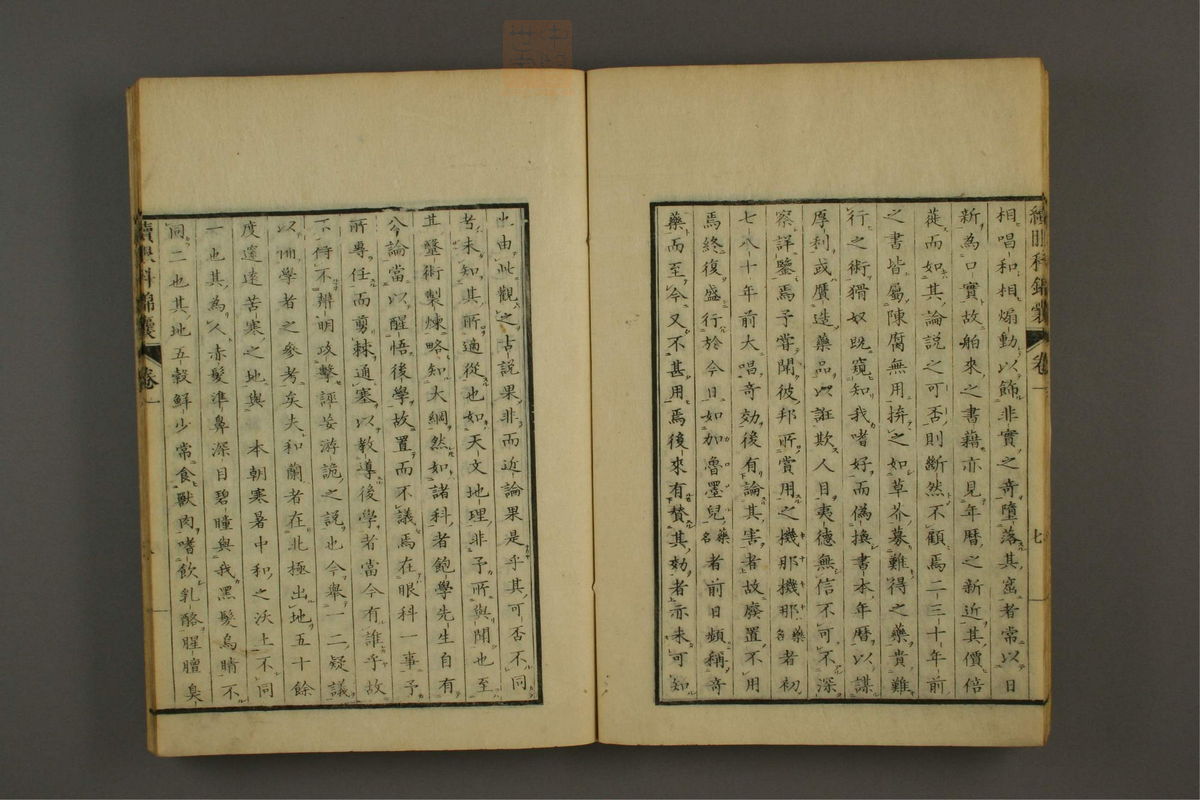 續眼科錦囊 卷一 七
相唱和相煽動以飾非實之奇墮落其窟者常以日
新為口實故舶來之書藉亦見年曆之新近其價倍
蓰而如其論說之可否則斷然不顧焉二三十年前
之書皆屬陳腐無用拚之如草芥募難得之藥貴難
行之術猾奴既窺知我嗜好而偽換書本年曆以謀
厚利或贋造藥品以誑欺人目夷德無信不可不深
察詳鑒焉予嘗聞彼邦所賞用之機那機那藥名者初
七八十年前大唱奇効後有論其害者故廢置不用
焉終復盛行於今日如加魯墨兒藥名者前日頻稱奇
藥而至今又不甚用焉後來有贊其効者亦未可知
也由此觀之古説果非而近論果是乎其可否不同
考未知其所適從也如天文地理非予所與聞也至
其毉術製煉略知大綱然如諸科者飽學先生自有
公論當以醒悟後學故置而不議焉在眼科一事予
所專任而剪棘通塞以教導後學者當今有誰乎故
不得不辨明攻擊誣妄游詭之說也今舉一二疑議
以備學者之參考矣夫和蘭者在北極出地五十餘
度邃遠苦寒之地與 本朝寒暑中和之沃土不同
一也其為人赤髮準鼻深目碧瞳與我黑髮烏睛不
同二也其地五穀鮮少常食獸肉嗜飲乳酪腥膻臭
續眼科錦囊 卷一